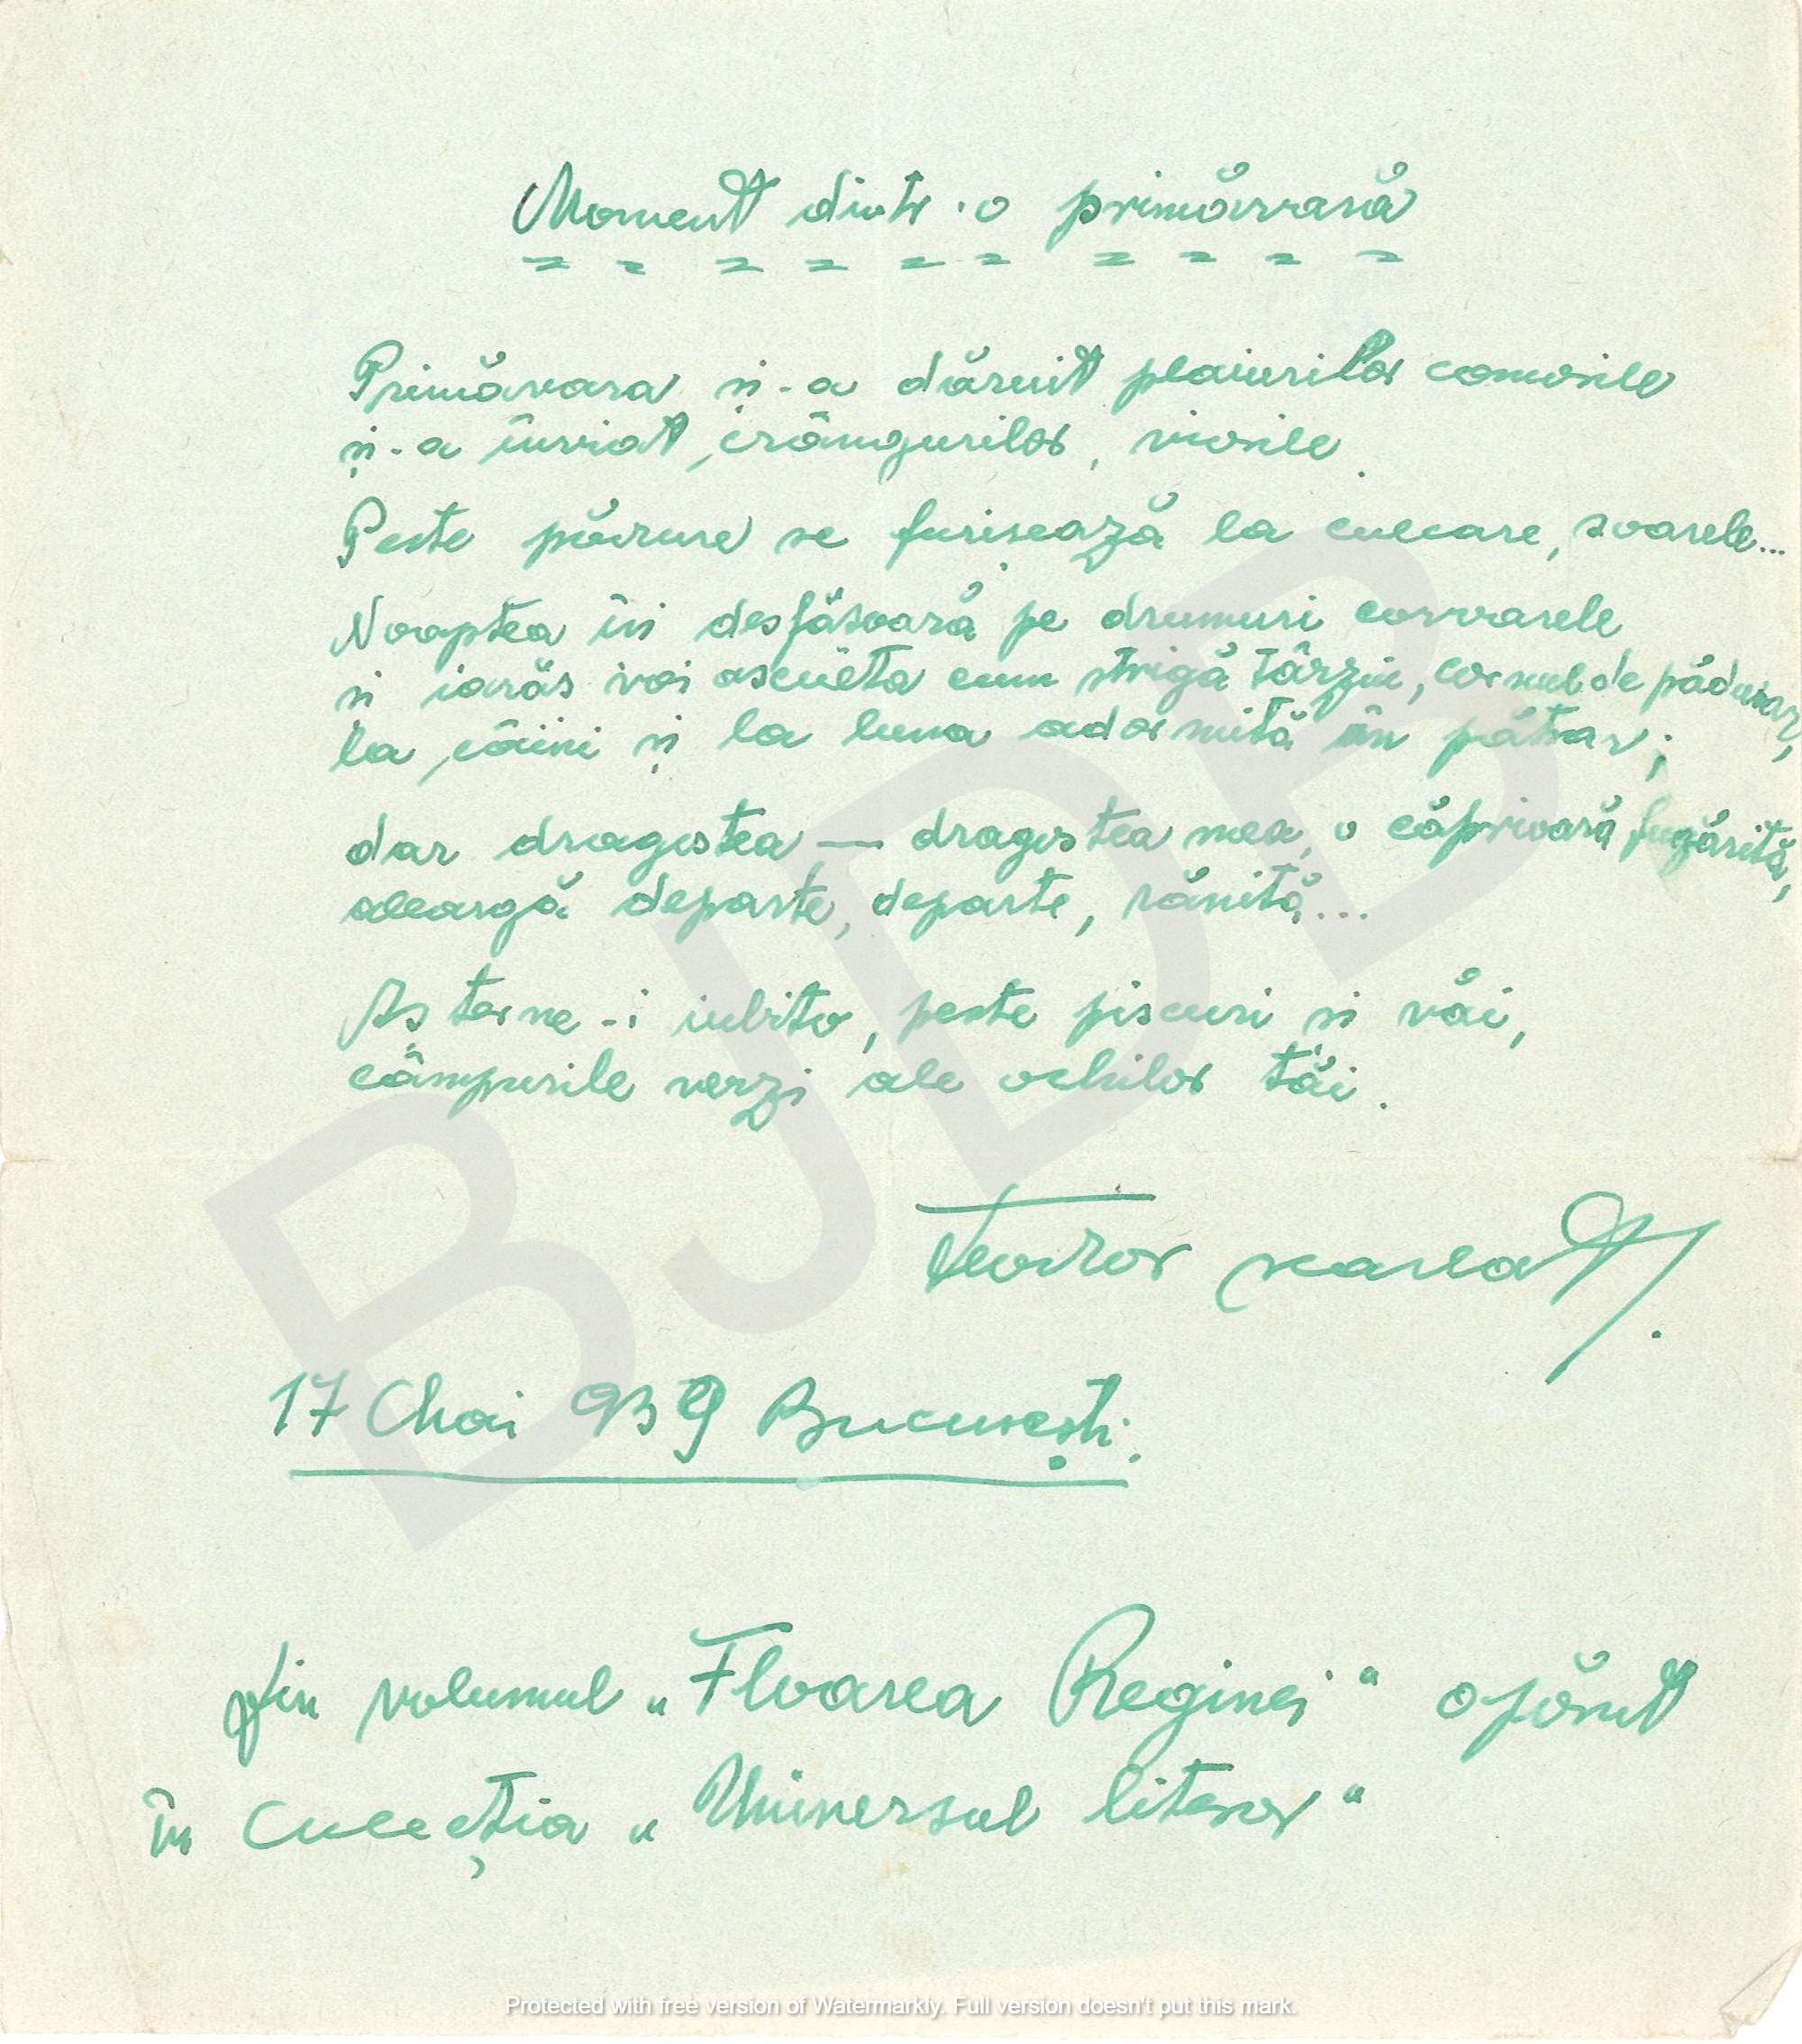 Moment dintr-o primăvară
Primăvara și-a dăruit plaiurilor comorile
și-a înviat, crângurilor, viorile.
Peste pădure se furișează la culcare, soarele...
Noaptea își desfășoară pe drumuri covoarele
și iarăș voi asculta cum strigă târziu, cornul de pădurar,
la câini și la luna adormită în pătrar;
dar dragostea — dragostea mea, o căprioară fugărită,
aleargă departe, departe, rănită...
Așterne-i iubito, peste piscuri și văi,
câmpurile verzi ale ochilor tăi.
Teodor Scarlat.
17 Mai 939 București.
Din volumul „Floarea Reginei“ apărut
în Colecția „Universul literar“
BJDB
Protected with free version of Watermarkly. Full version doesn't put this mark.